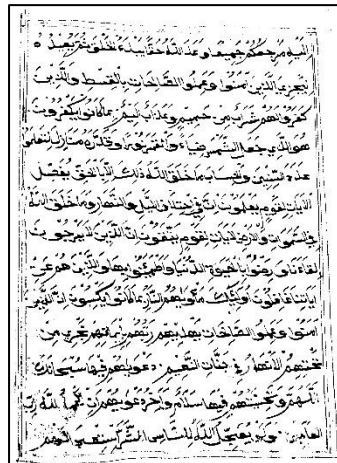 إليه مرجعكم جميعا وعد الله حقا إنه يبدؤ الخلق ثم يعيده
ليجزي الذين آمنوا وعملوا الصالحات بالقسط والذين
كفروا لهم شراب من حميم وعذاب أليم بما كانوا يكفرون
هو الذي جعل الشمس ضياء والقمر نورا وقدره منازل لتعلموا
عدد السنين والحساب ما خلق الله ذلك إلا بالحق يفصل
الآيات لقوم يعلمون إن في اختلاف الليل والنهار وما خلق الله
في السموات والأرض لآيات لقوم يتقون إن الذين لا يرجون
لقاءنا ورضوا بالحيوة الدنيا واطمأنوا بها والذين هم عن
آياتنا غافلون أولئك مأويهم النار بما كانوا يكسبون إن الذين
آمنوا وعملوا الصالحات يهديهم ربهم بإيمانهم تجري من
تحتهم الأنهار في جنات النعيم دعويهم فيها سبحانك
اللهم وتحيتهم فيها سلام وآخر دعويهم أن الحمد لله رب
العالمين ولو يعجل الله للناس الشر استعجالهم